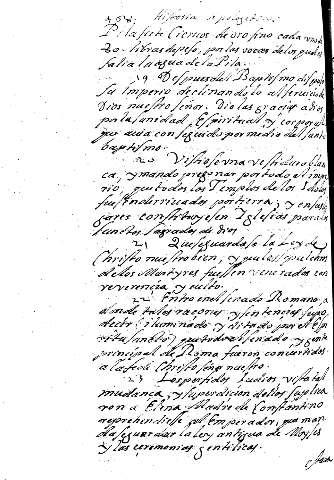 Historia
Pila siete Ciervos de oro fino cada uno de
80. libras de peso, por las vocas de los quales
salia la agua de la Pila.
19. Despues del Baptismo dispuso
su Imperio declinandolo al servicio de
Dios nuestro señor. Dio las gracias a dios
por la sanidad, Espiritual, y corporal
que avia conseguido por medio del santo
baptismo.
20. Vistiose una vestidura blan
ca, y mando pregonar por todo el impe
rio, que todos los Templos de los Idolos
fuesen derrivados por tierra; y en sus lu
gares constituyesen Iglesias para los
sanctos sagrados de dios
21. Que se guardase la Ley de
Christo nuestro bien, y que las
de los Martyres fuesen veneradas con
reverencia y culto.
22. Entro en el senado Romano, a
donde tales raçones y sentencias supo
decir (iluminado y dictado por el Espi
ritu sancto) que todo el senado, y gente
principal de Roma fueron convertidos
a la fee de Christo señor nuestro.
23. Los perfidos Iudios vista tal
mudança y superdicion dellos suplica
ron a Elena Madre de Constantino
reprehendiese al Emperador, que man
dase guardar la ley antigua de Moyses
y las ceremonias gentilicas.